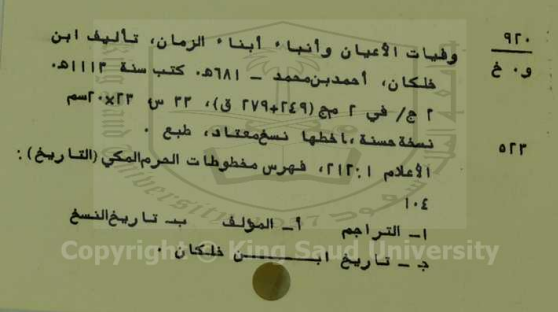 ٩٢٠
و٠خ
وفيات الأعيان وأنباء أبناء الزمان، تأليف ابن
خلكان، أحمدبن‌محمد - ٦٨١هـ. كتب سنة ١١١٣هـ.
٢ج/ في ٢ مج (٢٤٩+٢٧٩ ق)، ٣٣ س ٢٣×٢٠سم
٥٢٣
نسخة حسنة، خطها نسخ‌معتاد، طبع ٠
الأعلام ١:٢١٢، فهرس مخطوطات الحرم‌المكي (التاريخ):
١٠٤
١- التراجم أ- المؤلف ب- تاريخ‌النسخ
جـ - تاريخ ابن خلكان ٠
Copyright © King Saud University